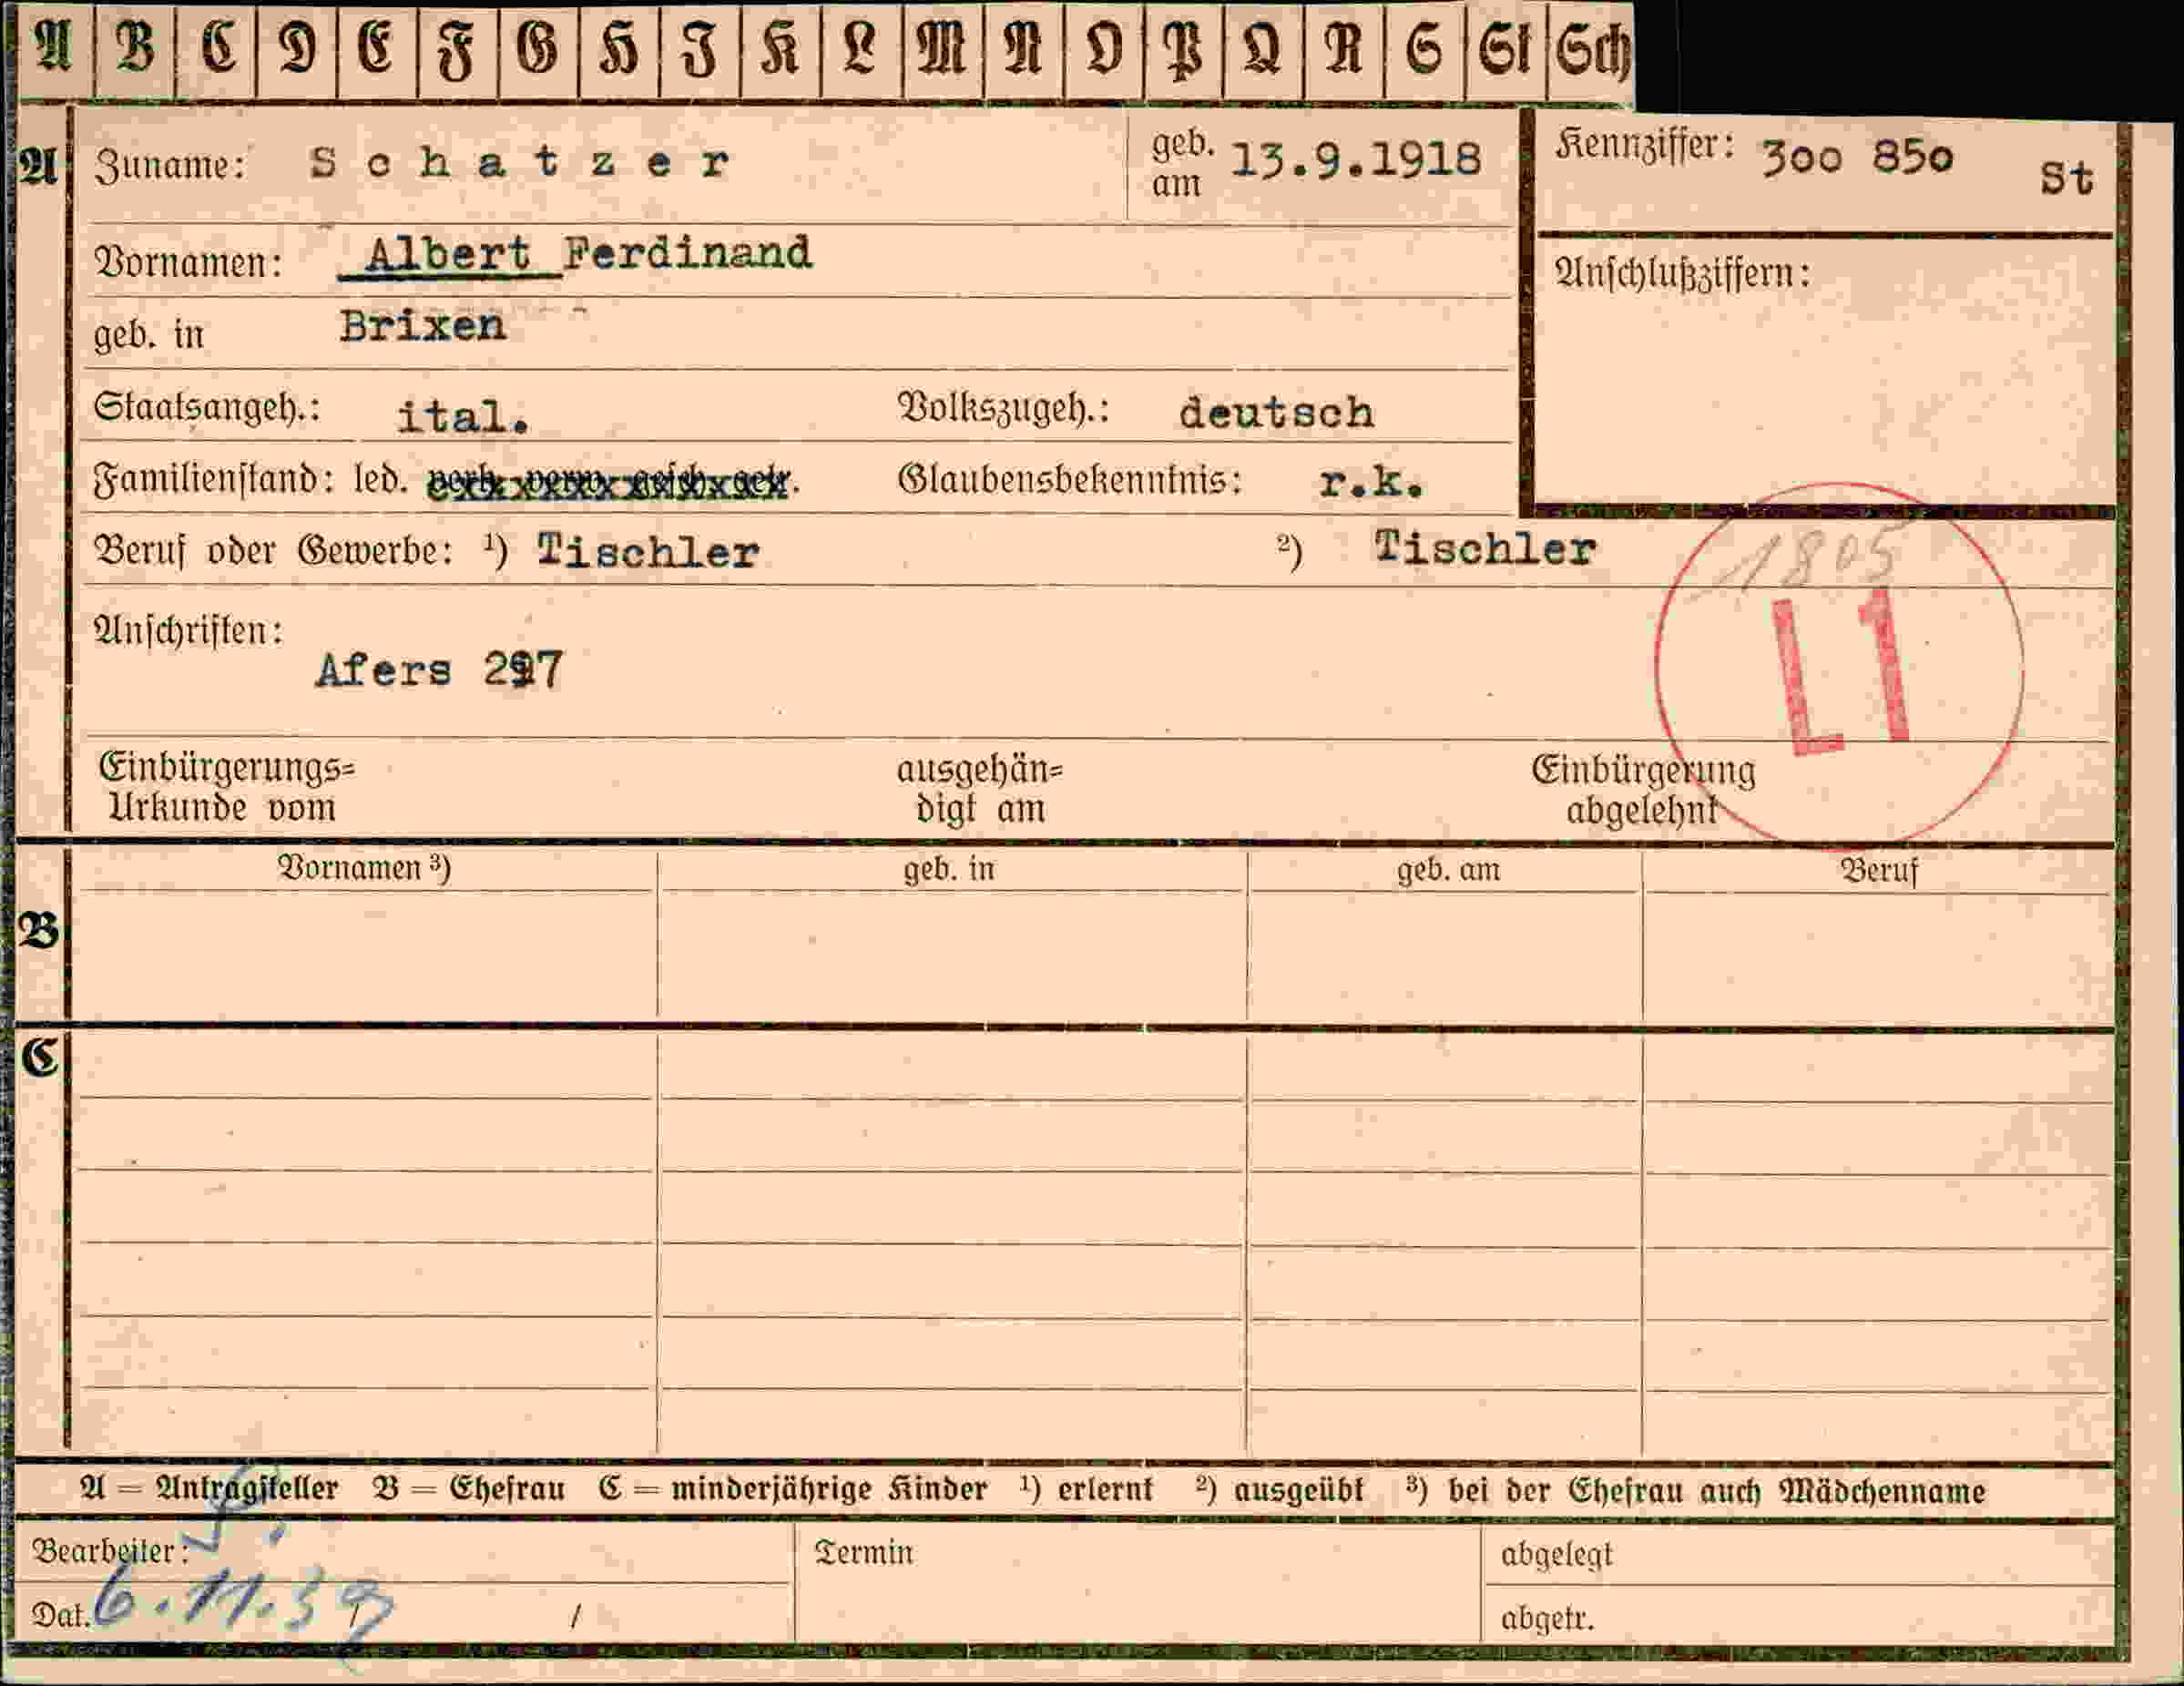 A B C D E F G H I K L M N O P Q R S St Sch
A Zuname: Schatzer geb. am 13.9.1918 Kennziffer: 300 850 St
Vornamen: Albert Ferdinand Anschlußziffern:
geb. in Brixen
Staatsangeh.: ital. Volkszugeh.: deutsch
Familienstand: led. verh. verw. gesch. getr. Glaubensbekenntnis: r.k.
Beruf oder Gewerbe: ¹) Tischler ²) Tischler
1805
L1
Anschriften:
Afers
Einbürgerungs= ausgehän= Einbürgerung
Urkunde vom digt am abgelehnt
Vornamen ³) geb. in geb. am Beruf
B
C
A = Antragsteller B = Ehefrau C = minderjährige Kinder ¹) erlernt ²) ausgeübt ³) bei der Ehefrau auch Mädchenname
Bearbeiter: Termin abgelegt
Dat. 6.11.39 / abgetr.